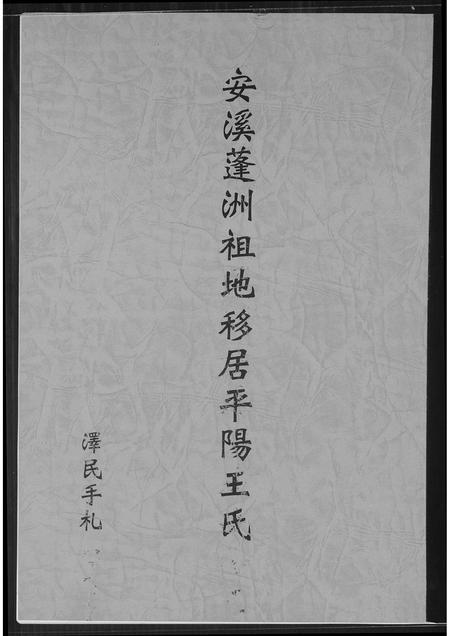 安溪蓬洲祖地移居平陽王氏
澤民手札